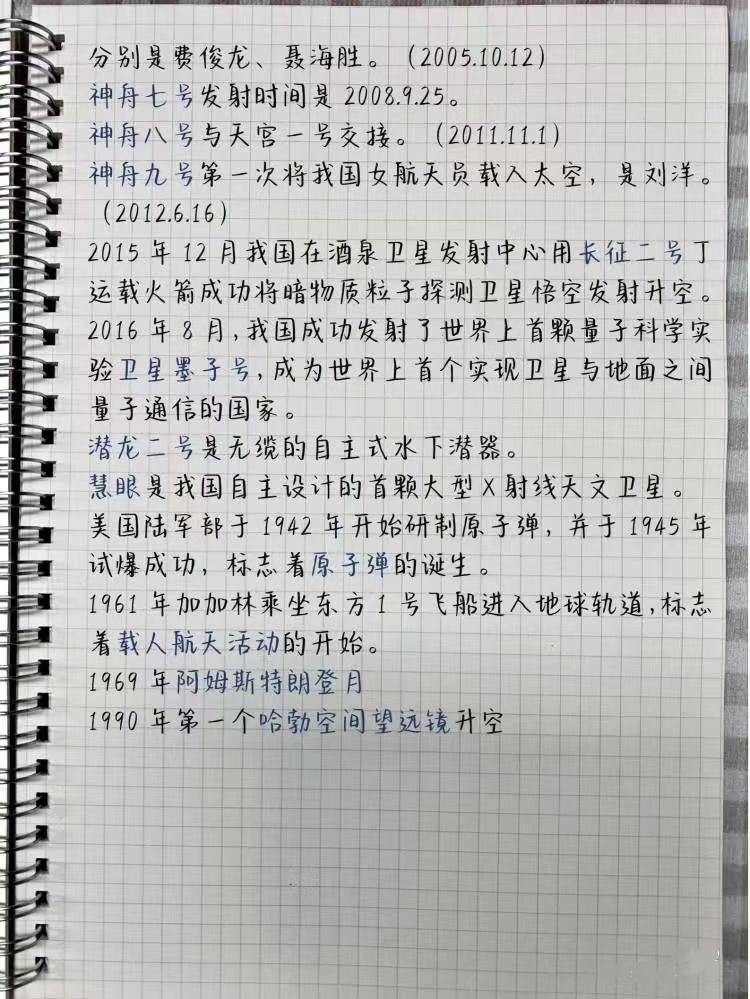 分别是费俊龙、聂海胜。(2005.10.12)
神舟七号发射时间是 2008.9.25。
神舟八号与天宫一号交接。(2011.11.1)
神舟九号第一次将我国女航天员载入太空，是刘洋。
(2012.6.16)
2015 年 12 月我国在酒泉卫星发射中心用长征二号丁
运载火箭成功将暗物质粒子探测卫星悟空发射升空。
2016 年 8 月,我国成功发射了世界上首颗量子科学实
验卫星墨子号,成为世界上首个实现卫星与地面之间
量子通信的国家。
潜龙二号是无缆的自主式水下潜器。
慧眼是我国自主设计的首颗大型 X 射线天文卫星。
美国陆军部于 1942 年开始研制原子弹，并于 1945 年
试爆成功，标志着原子弹的诞生。
1961 年加加林乘坐东方 1 号飞船进入地球轨道,标志
着载人航天活动的开始。
1969 年阿姆斯特朗登月
1990 年第一个哈勃空间望远镜升空